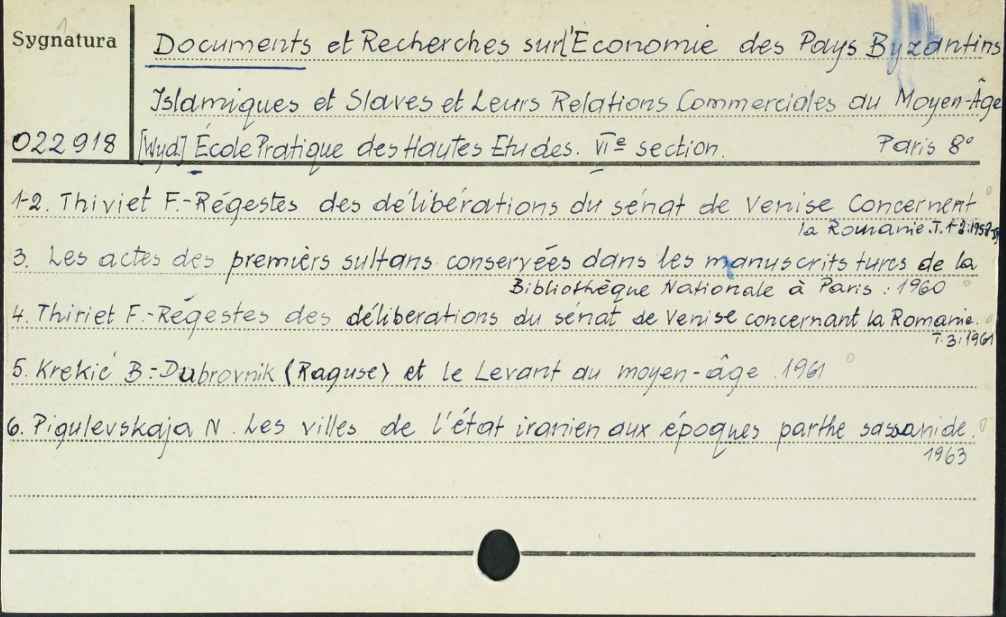 Sygnatura
Documents et Recherches sur l'Economie des Pays Byzantins
Islamiques et Slaves et Leurs Relations Commerciales au Moyen-Âge
022918 [Wyd] École Pratique des Hautes Etudes. VIe section. Paris 8°
1-2. Thiviet F.-Régestes des délibérations du sénat de Venise Concernent
la Romanie. T. 1-2: 1958-
3. Les actes des premiers sultans conservées dans les manuscrits turcs de la
Bibliothèque Nationale à Paris : 1960
4. Thiriet F.-Régestes des déliberations du sénat de Venise concernant la Romanie.
T. 3: 1961
5. Krekić B.- Dubrovnik (Raguse) et le Levant au moyen-âge . 1961
6. Pigulevskaja N. Les villes de l'état iranien aux époques parthe sassanide.
1963